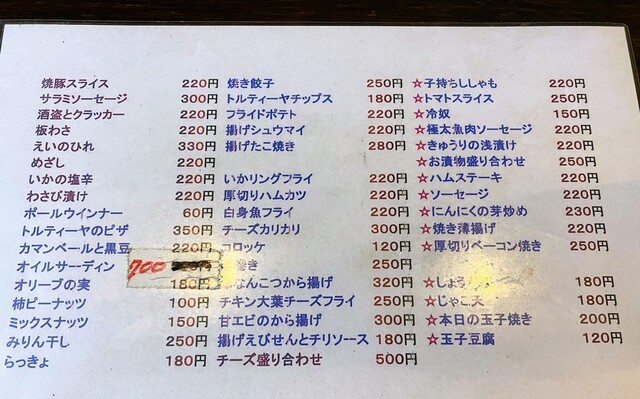 焼豚スライス 220円 焼き餃子 250円 ☆子持ちししゃも 220円
サラミソーセージ 300円 トルティーヤチップス 180円 ☆トマトスライス 250円
酒盗とクラッカー 220円 フライドポテト 220円 ☆冷奴 150円
板わさ 220円 揚げシュウマイ 220円 ☆極太魚肉ソーセージ 220円
えいのひれ 330円 揚げたこ焼き 280円 ☆きゅうりの浅漬け 220円
めざし 220円 ☆お漬物盛り合わせ 250円
いかの塩辛 220円 いかリングフライ 220円 ☆ハムステーキ 220円
わさび漬け 220円 厚切りハムカツ 220円 ☆ソーセージ 220円
ポールウインナー 60円 白身魚フライ 220円 ☆にんにくの芽炒め 230円
トルティーヤのピザ 350円 チーズカリカリ 300円 ☆焼き薄揚げ 220円
カマンベールと黒豆 220円 コロッケ 120円 ☆厚切りベーコン焼き 250円
オイルサーディン 700 き 250円
オリーブの実 180円 なんこつから揚げ 320円 ☆しょう 180円
柿ピーナッツ 100円 チキン大葉チーズフライ 250円 ☆じゃこ天 180円
ミックスナッツ 150円 甘エビのから揚げ 300円 ☆本日の玉子焼き 200円
みりん干し 250円 揚げえびせんとチリソース 180円 ☆玉子豆腐 120円
らっきょ 180円 チーズ盛り合わせ 500円